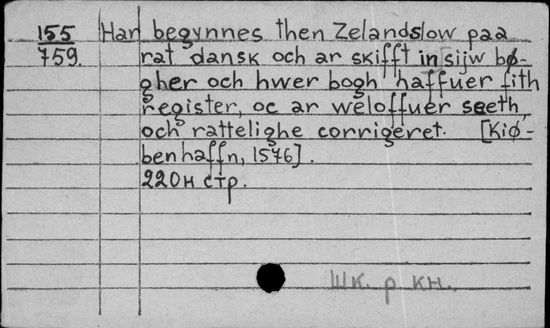 155 Han begynnes then Zelandslow paa
759. rat dansk och ar skifft in sijw bø-
gher och hwer bogh haffuer fith
register, oc ar weloffuer seeth,
och rattelighe corrigeret. [Kiø-
benhaffn, 1576].
220н стр.
Шк. р кн.